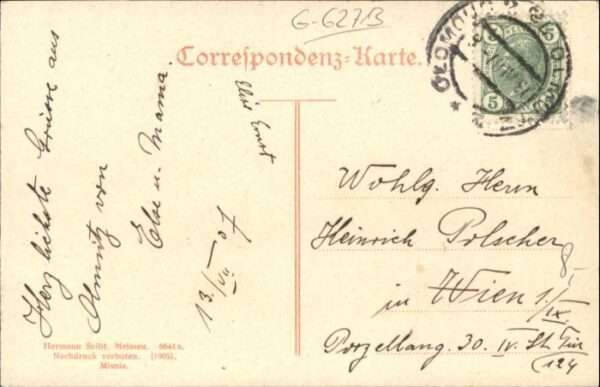 G-627B
Correspondenz-Karte.
OLOMOUC
5 5
Herzlichste Grüsse aus
Olmütz von
Else u. Mama.
Ernst
13./VII. 07
Wohlg. Herrn
Heinrich Polscher
in Wien 1./IX.
Porzellang. 30. IV. St. Tür
(124)
Hermann Seibt, Meissen.
Nachdruck verboten. (1905).
Misnia.